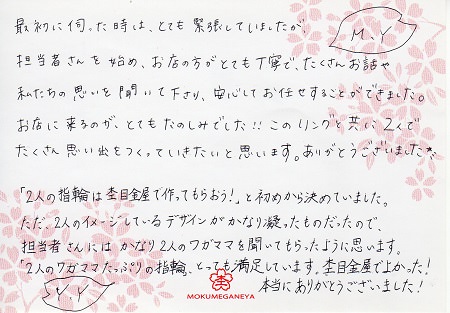 最初に伺った時は、とても緊張していましたが、
M.Y
担当者さんを始め、お店の方がとても丁寧で、たくさんお話や
私たちの思いを聞いて下さり、安心してお任せすることができました。
お店に来るのが、とてもたのしみでした!!このリングと共に2人で
たくさん思い出をつくっていきたいと思います。ありがとうございました
「2人の指輪は杢目金屋で作ってもらおう!」と初めから決めていました。
ただ、2人のイメージしているデザインがかなり凝ったものだったので、
担当者さんにはかなり2人のワガママを聞いてもらったように思います。
「2人のワガママたっぷりの指輪、とっても満足しています。杢目金屋でよかった!
本当にありがとうございました!
Y.Y
MOKUMEGANEYA